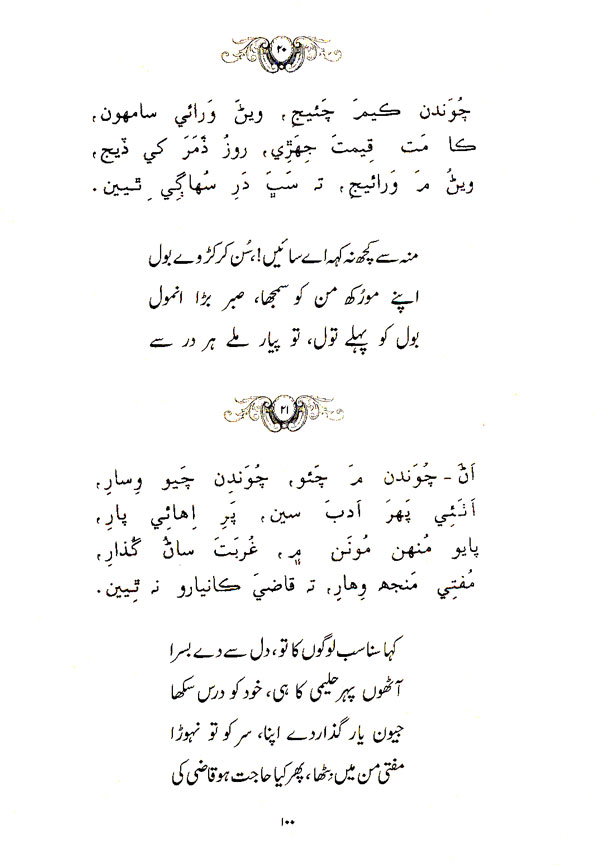 ۲۰
چُوَندن ڪيمَ چَئيجِ، ويڻَ وَرائي سامھون،
ڪا مَت قِيمتَ جِهَڙِي، روزُ ذَمَرَ کي ڏيج،
ويڻُ مَ وَرائيجِ، تہ سَڀَ دَرِ سُهاڳِي ٿِيين.
منہ سے کچھ نہ کہہ اے سائیں!، سُن کر کڑوے بول
اپنے مورُکھ من کو سمجھا، صبر بڑا انمول
بول کو پہلے تول، تو پیار ملے ہر در سے
۲۱
اَڻَ - چُوَندن مَ چَئو، چُوَندِن چَيو وِسارِ،
اَٺَئِي پَھرَ اَدبَ سين، پَرِ اِهائِي پارِ،
پايو مُنهن مُونَن ۾، غُربَتَ ساڻُ گُذارِ،
مُفتِي مَنجھ وِهارِ، تہ قاضيَ ڪانيارو نہ ٿِيين.
کہا سنا سب لوگوں کا تو، دل سے دے بسرا
آٹھوں پہر حلیمی کا ہی، خود کو درس سکھا
جیون یار گذار دے اپنا، سر کو تو نہوڑا
مفتی من میں بِٹھا، پھر کیا حاجت ہو قاضی کی
۱۰۰